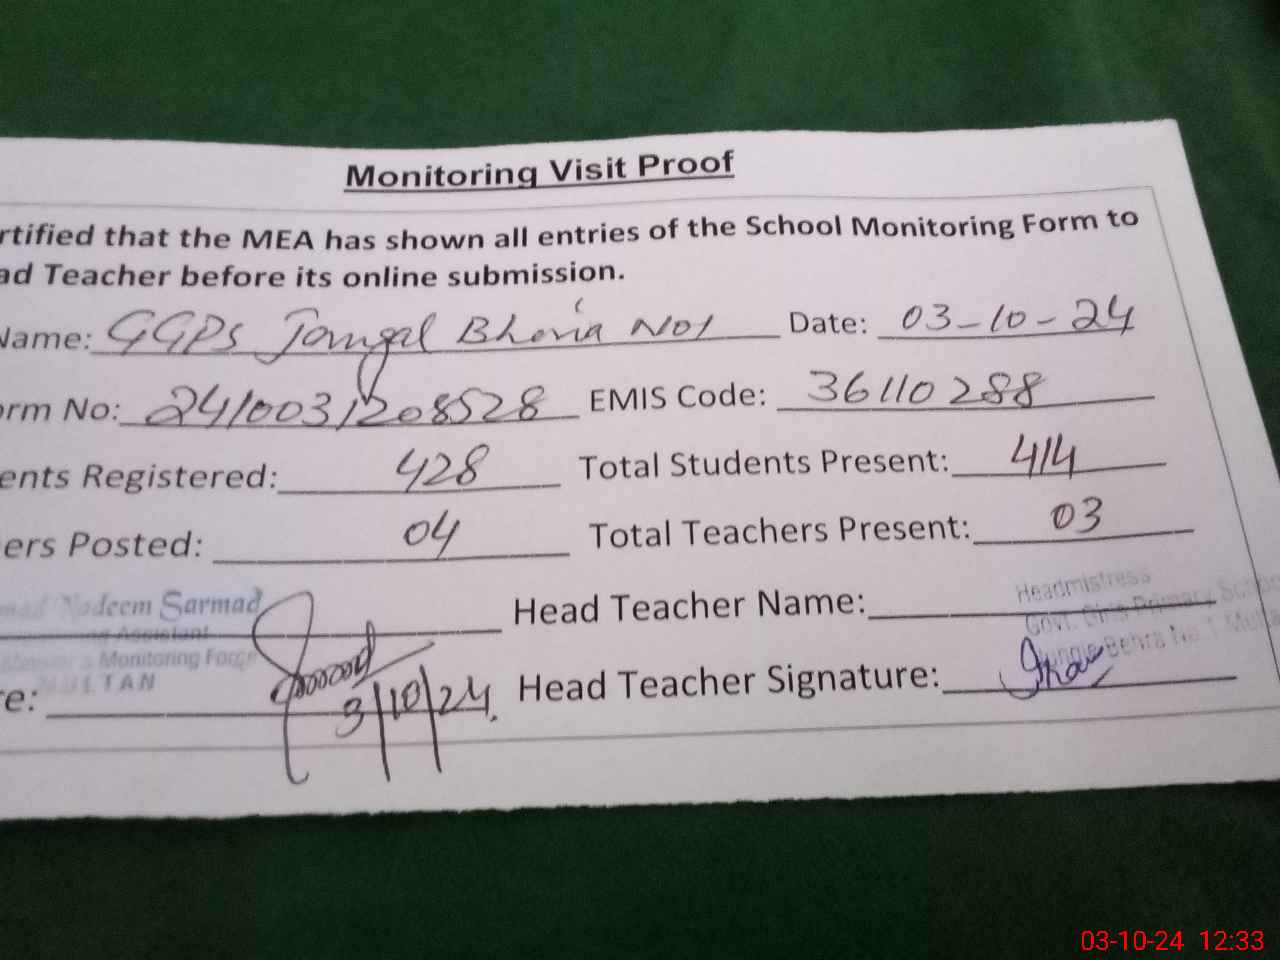 Monitoring Visit Proof
rtified that the MEA has shown all entries of the School Monitoring Form to
ad Teacher before its online submission.
Name: GGPS Jangal Bheria No1 Date: 03-10-24
orm No: 2410031208528 EMIS Code: 36110288
ents Registered: 428 Total Students Present: 414
ers Posted: 04 Total Teachers Present: 03
Nadeem Sarmad
Assistant
Monitoring Force
MULTAN
Head Teacher Name:
Headmistress
Govt. Girls Primary School
Behra No.1
re: 3/10/24. Head Teacher Signature:
03-10-24 12:33